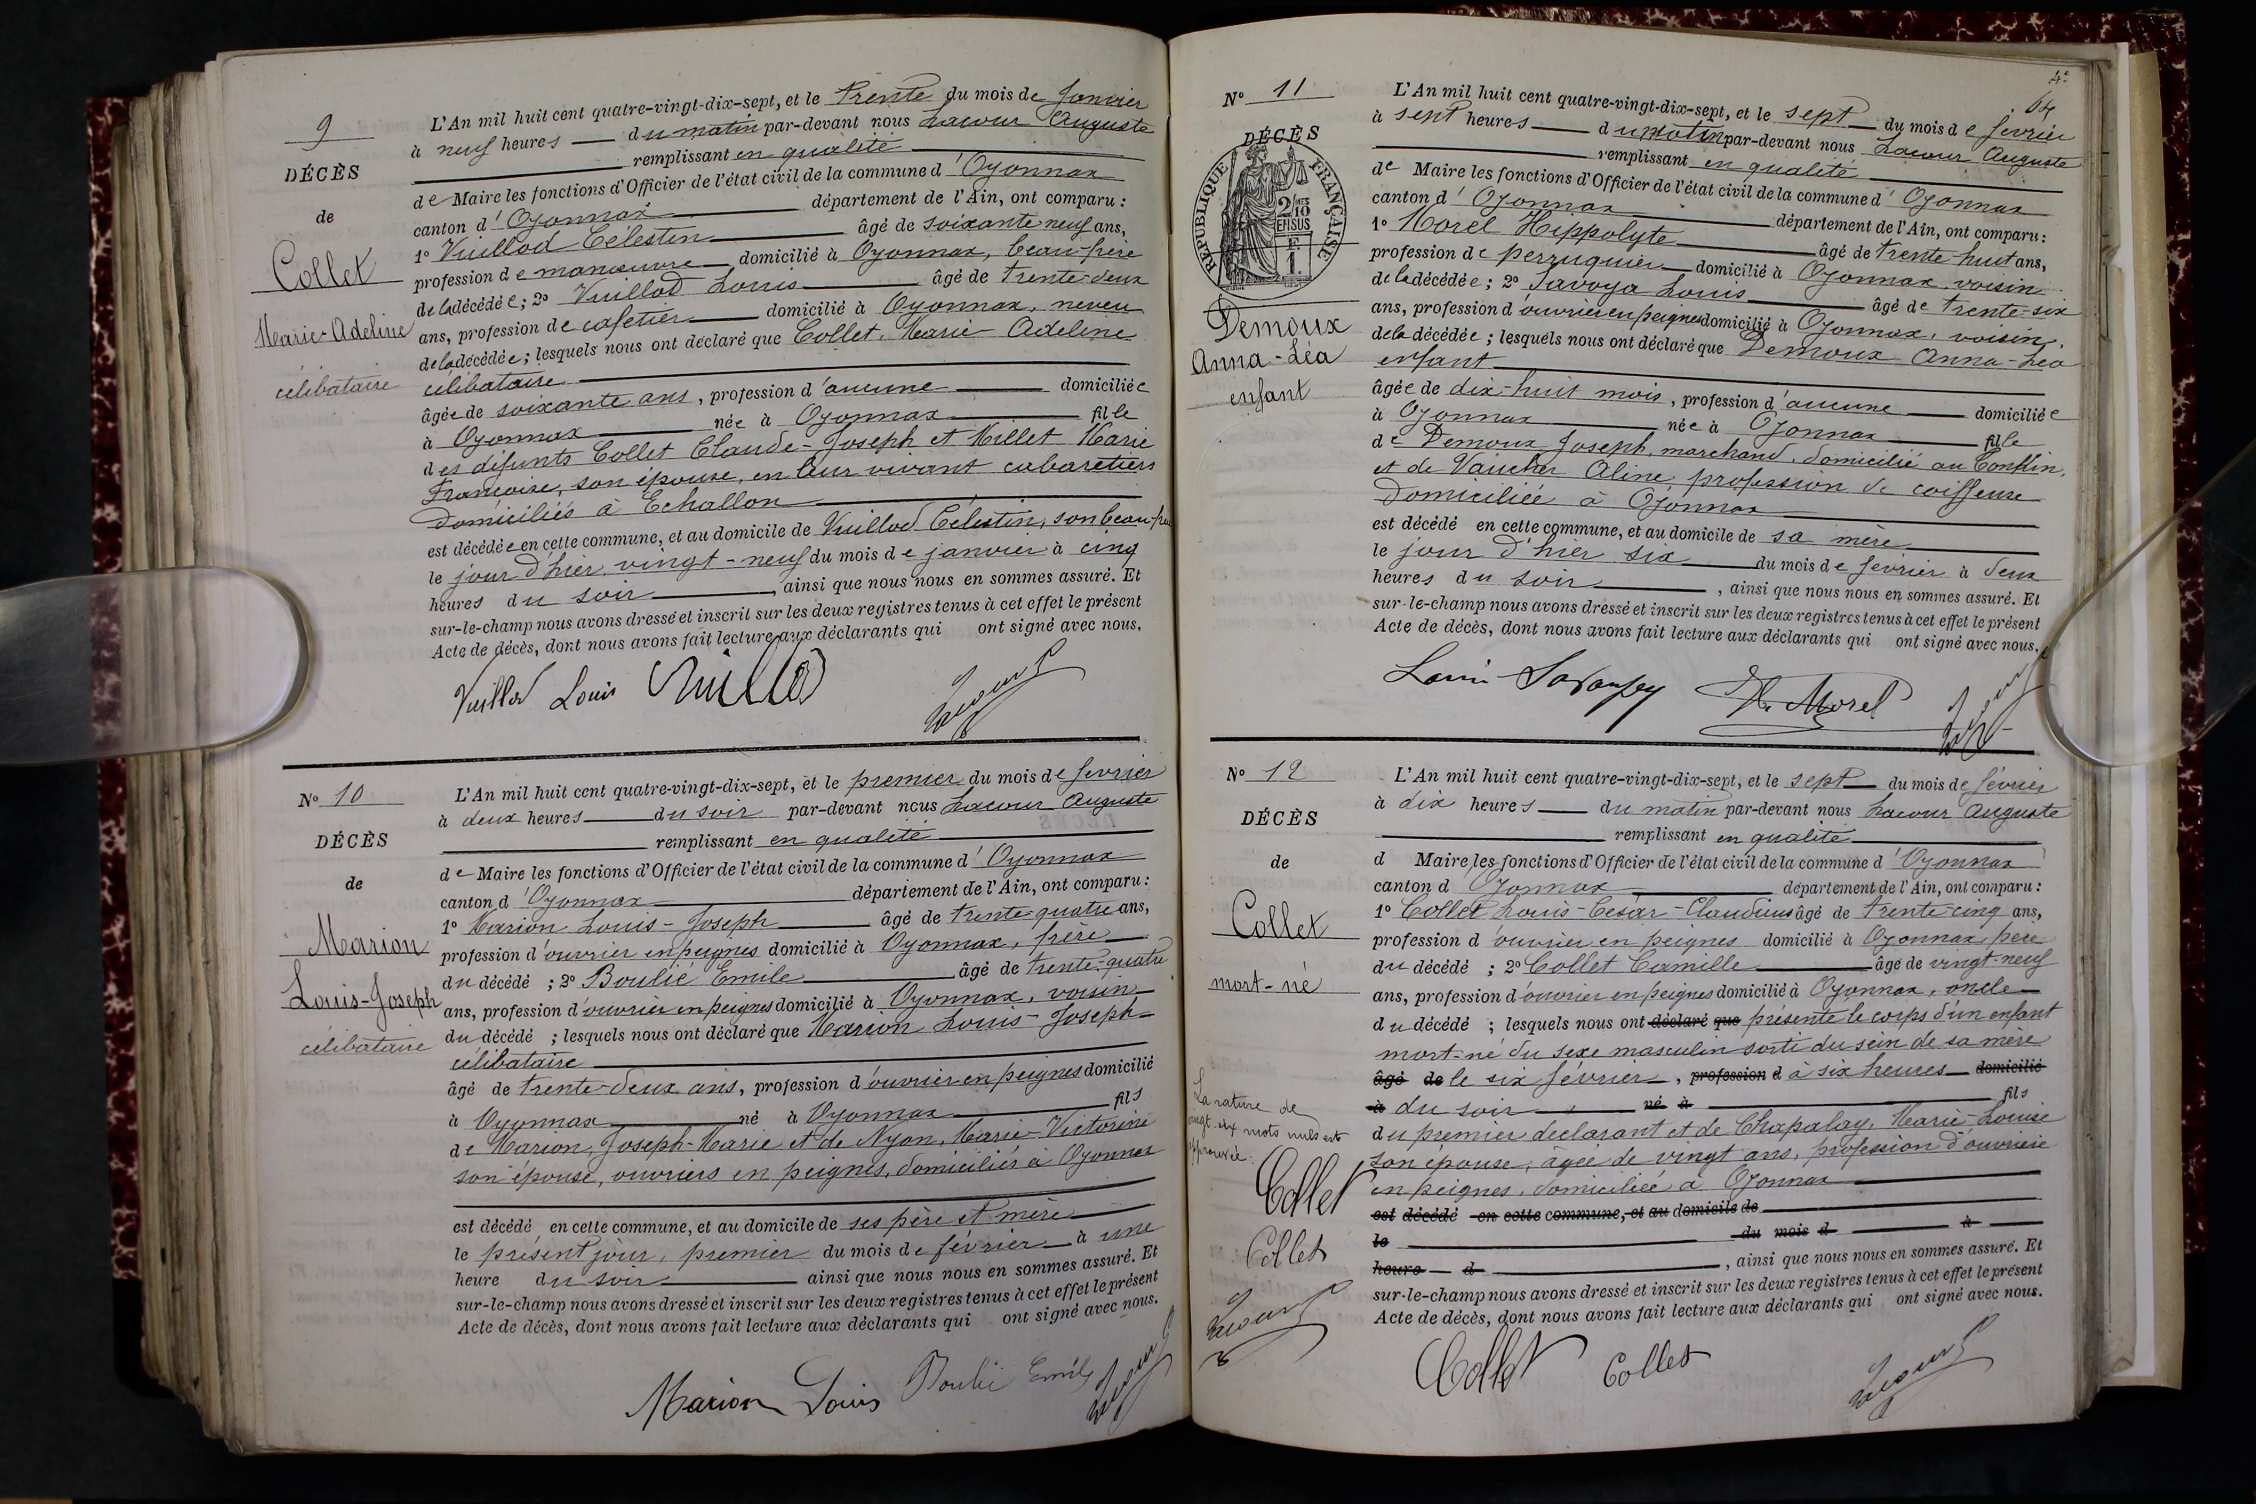 9
DÉCÈS
de
Collet
Marie-Adeline
célibataire
L'An mil huit cent quatre-vingt-dix-sept, et le Trente du mois de Janvier
à neuf heures du matin par-devant nous Lacour Auguste
remplissant en qualité
de Maire les fonctions d'Officier de l'état civil de la commune d'Oyonnax
canton d'Oyonnax département de l'Ain, ont comparu :
1º Vuillod Célestin âgé de soixante neuf ans,
profession de manœuvre domicilié à Oyonnax, beau-frère
de la décédée ; 2º Vuillod Louis âgé de trente-deux
ans, profession de cafetier domicilié à Oyonnax, neveu
de la décédée ; lesquels nous ont déclaré que Collet, Marie-Adeline
célibataire
âgée de soixante ans, profession d'aucune domiciliée
à Oyonnax née à Oyonnax fille
des défunts Collet Claude-Joseph et Millet Marie
Françoise, son épouse, en leur vivant cabaretiers
domiciliés à Echallon
est décédée en cette commune, et au domicile de Vuillod Célestin, son beau-frère
le jour d'hier, vingt-neuf du mois de janvier à cinq
heures du soir, ainsi que nous nous en sommes assuré. Et
sur-le-champ nous avons dressé et inscrit sur les deux registres tenus à cet effet le présent
Acte de décès, dont nous avons fait lecture aux déclarants qui ont signé avec nous.
Vuillod Louis Vuillod Lacour
Nº 10
DÉCÈS
de
Marion
Louis-Joseph
célibataire
L'An mil huit cent quatre-vingt-dix-sept, et le premier du mois de février
à deux heures du soir par-devant nous Lacour Auguste
remplissant en qualité
de Maire les fonctions d'Officier de l'état civil de la commune d'Oyonnax
canton d'Oyonnax département de l'Ain, ont comparu :
1º Marion Louis-Joseph âgé de trente-quatre ans,
profession d'ouvrier en peignes domicilié à Oyonnax, frère
du décédé ; 2º Boulié Emile âgé de trente-quatre
ans, profession d'ouvrier en peignes domicilié à Oyonnax, voisin
du décédé ; lesquels nous ont déclaré que Marion Louis-Joseph
célibataire
âgé de trente-deux ans, profession d'ouvrier en peignes domicilié
à Oyonnax né à Oyonnax fils
de Marion, Joseph-Marie et de Nyon, Marie-Victorine
son épouse, ouvriers en peignes, domiciliés à Oyonnax
est décédé en cette commune, et au domicile de ses père et mère
le présent jour, premier du mois de février à une
heure du soir ainsi que nous nous en sommes assuré. Et
sur-le-champ nous avons dressé et inscrit sur les deux registres tenus à cet effet le présent
Acte de décès, dont nous avons fait lecture aux déclarants qui ont signé avec nous.
Marion Louis Boulié Emile Lacour
Nº 11
DÉCÈS
RÉPUBLIQUE FRANÇAISE
2/10 EN SUS
F
1
Demoux
Anna-Léa
enfant
L'An mil huit cent quatre-vingt-dix-sept, et le sept du mois de février
à sept heures du matin par-devant nous Lacour Auguste
remplissant en qualité
de Maire les fonctions d'Officier de l'état civil de la commune d'Oyonnax
canton d'Oyonnax département de l'Ain, ont comparu :
1º Morel Hippolyte âgé de trente-huit ans,
profession de perruquier domicilié à Oyonnax voisin
de la décédée ; 2º Savoya Louis âgé de trente-six
ans, profession d'ouvrier en peignes domicilié à Oyonnax, voisin,
de la décédée ; lesquels nous ont déclaré que Demoux Anna-Léa
enfant
âgée de dix-huit mois, profession d'aucune domiciliée
à Oyonnax née à Oyonnax fille
de Demoux Joseph, marchand, domicilié au Conflin,
et de Vaucher Aline, profession de coiffeuse
domiciliée à Oyonnax
est décédé en cette commune, et au domicile de sa mère
le jour d'hier six du mois de février à deux
heures du soir, ainsi que nous nous en sommes assuré. Et
sur-le-champ nous avons dressé et inscrit sur les deux registres tenus à cet effet le présent
Acte de décès, dont nous avons fait lecture aux déclarants qui ont signé avec nous.
H. Morel Lacour
Nº 12
DÉCÈS
de
Collet
mort-né
La rature de
vingt-six mots nuls est
approuvée.
Collet
Collet
Lacour
L'An mil huit cent quatre-vingt-dix-sept, et le sept du mois de février
à dix heures du matin par-devant nous Lacour Auguste
remplissant en qualité
d Maire les fonctions d'Officier de l'état civil de la commune d'Oyonnax
canton d Oyonnax département de l'Ain, ont comparu :
1º Collet Louis-César-Claudius âgé de trente-cinq ans,
profession d'ouvrier en peignes domicilié à Oyonnax père
du décédé ; 2º Collet Camille âgé de vingt-neuf
ans, profession d'ouvrier en peignes domicilié à Oyonnax, oncle
du décédé ; lesquels nous ont déclaré que présenté le corps d'un enfant
mort-né du sexe masculin sorti du sein de sa mère
âgé de le six février, profession d à six heures domicilié
à du soir né à fils
du premier déclarant et de Chapalay, Marie-Louise
son épouse, âgée de vingt ans, profession d'ouvrière
en peignes, domiciliée à Oyonnax
est décédé en cette commune, et au domicile de
le du mois d à
heure d, ainsi que nous nous en sommes assuré. Et
sur-le-champ nous avons dressé et inscrit sur les deux registres tenus à cet effet le présent
Acte de décès, dont nous avons fait lecture aux déclarants qui ont signé avec nous.
Collet Collet Lacour